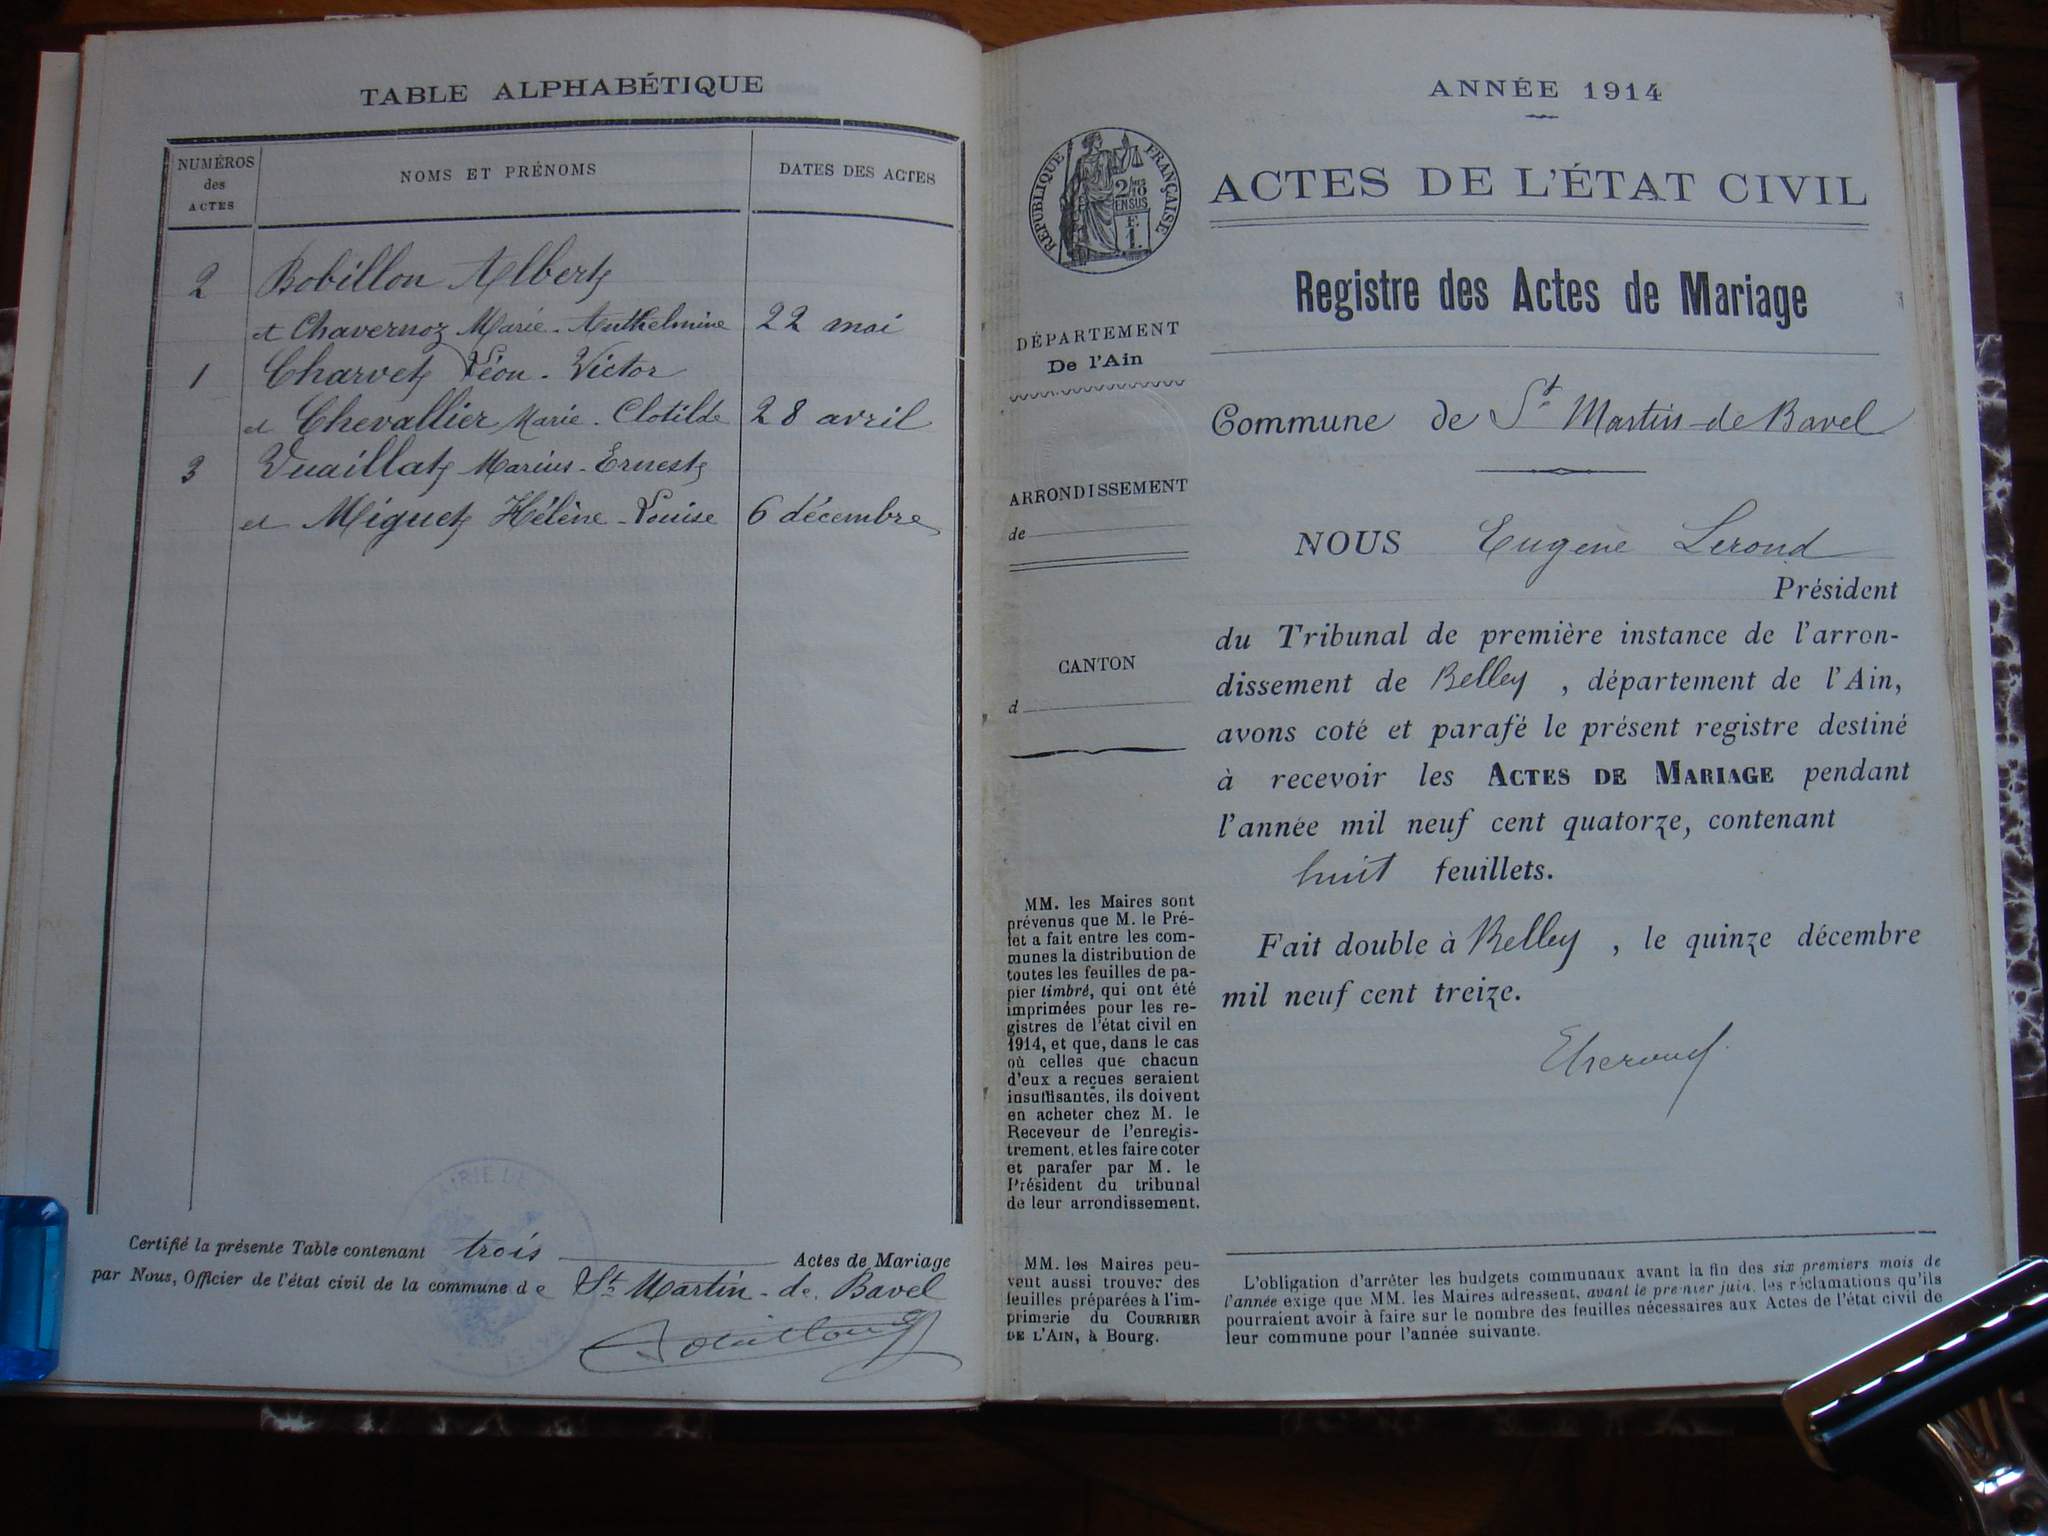 TABLE ALPHABÉTIQUE
NUMÉROS des ACTES
NOMS ET PRÉNOMS
DATES DES ACTES
2 Bobillon Albert
et Chavernoz Marie-Anthelmine 22 mai
1 Charvet Léon-Victor
et Chevallier Marie-Clotilde 28 avril
3 Vuaillat Marius-Ernest
et Miguet Hélène-Louise 6 décembre
Certifié la présente Table contenant trois Actes de Mariage
par Nous, Officier de l'état civil de la commune de St Martin-de-Bavel
ANNÉE 1914
RÉPUBLIQUE FRANÇAISE
ACTES DE L'ÉTAT CIVIL
Registre des Actes de Mariage
DÉPARTEMENT
De l'Ain
Commune de St Martin-de Bavel
ARRONDISSEMENT
de
CANTON
d
NOUS Eugène Lerond
Président
du Tribunal de première instance de l'arron-
dissement de Belley, département de l'Ain,
avons coté et parafé le présent registre destiné
à recevoir les ACTES DE MARIAGE pendant
l'année mil neuf cent quatorze, contenant
huit feuillets.
Fait double à Belley, le quinze décembre
mil neuf cent treize.
MM. les Maires sont
prévenus que M. le Pré-
fet a fait entre les com-
munes la distribution de
toutes les feuilles de pa-
pier timbré, qui ont été
imprimées pour les re-
gistres de l'état civil en
1914, et que, dans le cas
où celles que chacun
d'eux a reçues seraient
insuffisantes, ils doivent
en acheter chez M. le
Receveur de l'enregis-
trement, et les faire coter
et parafer par M. le
Président du tribunal
de leur arrondissement.
MM. les Maires peu-
vent aussi trouver des
feuilles préparées à l'im-
primerie du COURRIER
DE L'AIN, à Bourg.
L'obligation d'arrêter les budgets communaux avant la fin des six premiers mois de
l'année exige que MM. les Maires adressent, avant le premier juin, les réclamations qu'ils
pourraient avoir à faire sur le nombre des feuilles nécessaires aux Actes de l'état civil de
leur commune pour l'année suivante.